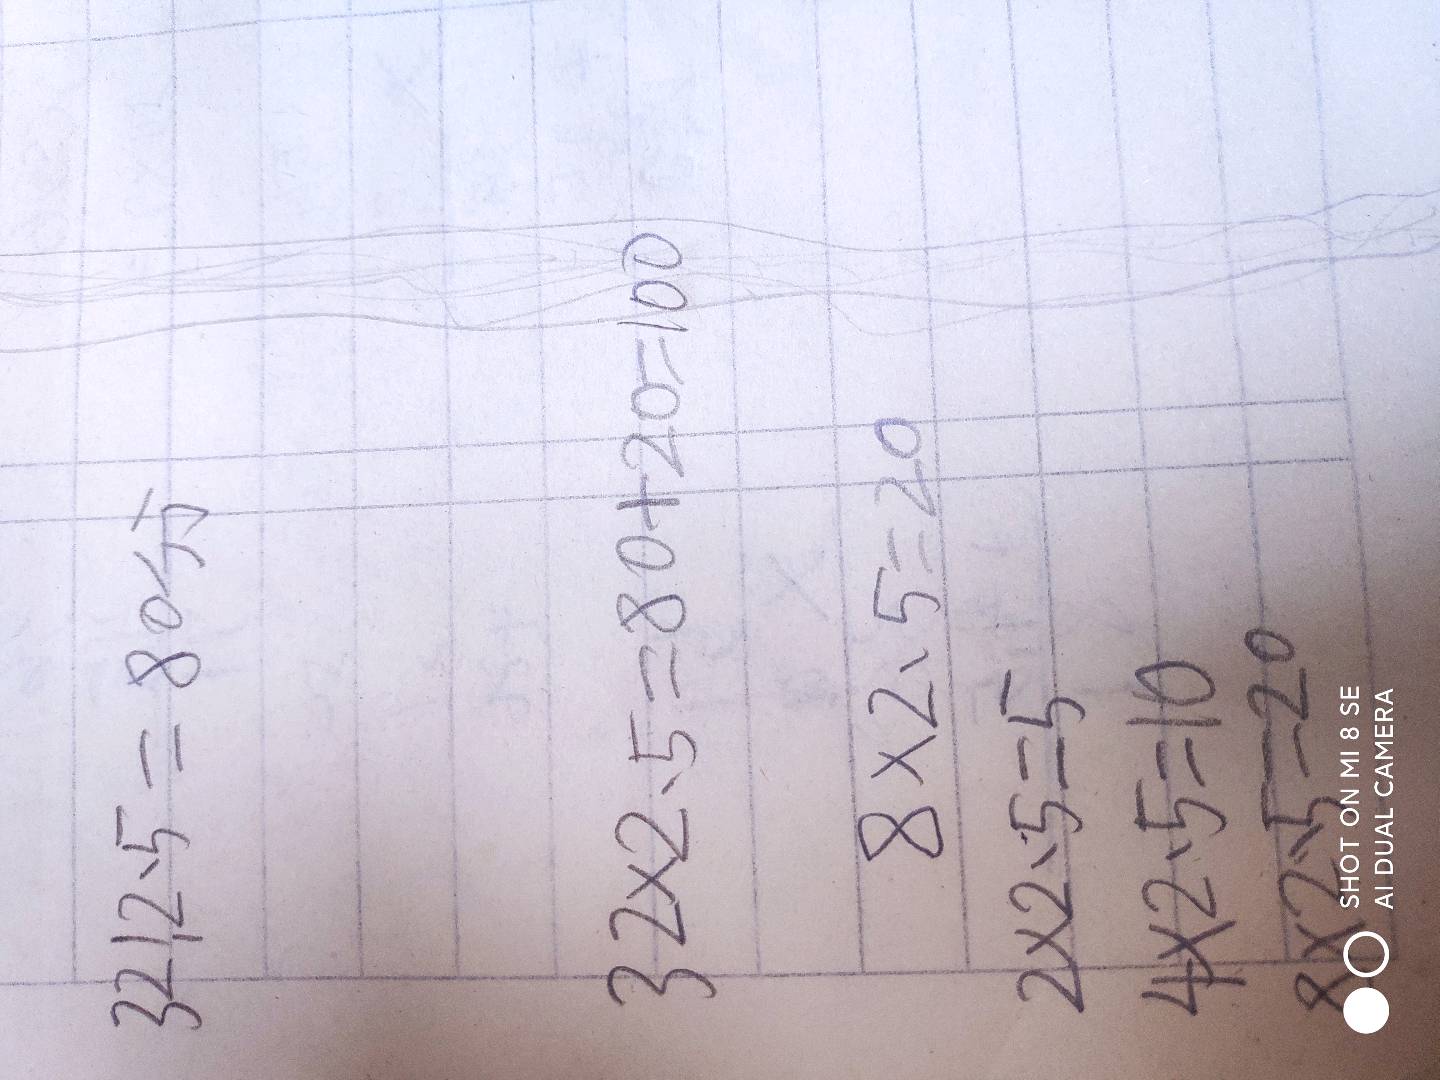 3212、5=80分
32×2、5=80+20=100
8×2、5=20
2×2、5=5
4×2、5=10
8×2、5=20
SHOT ON MI 8 SE
AI DUAL CAMERA